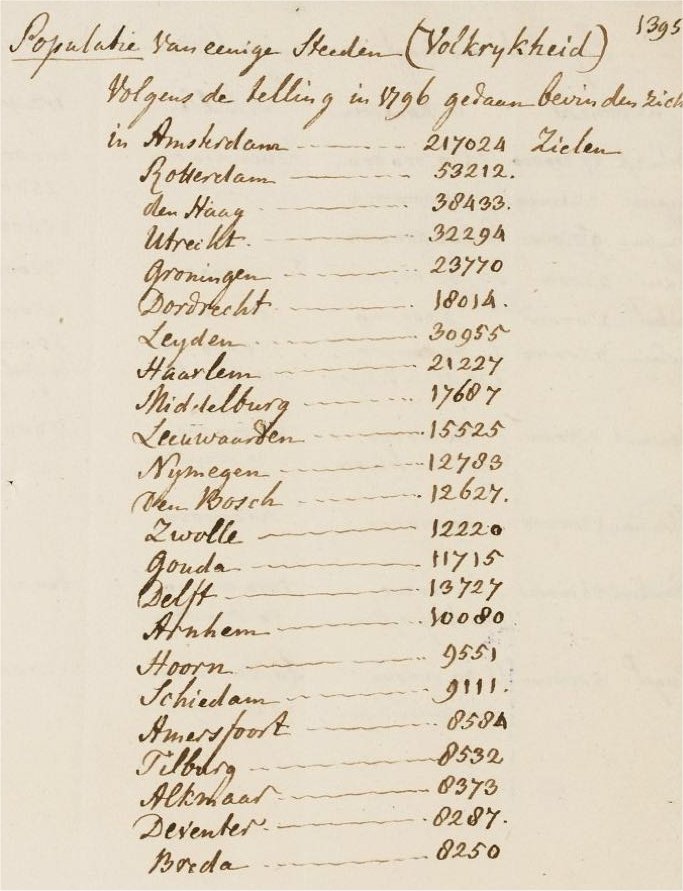 1395
Populatie van eenige Steeden (Volkrykheid)
Volgens de telling in 1796 gedaan bevinden zich
in Amsterdam 217024 Zielen
Rotterdam 53212.
den Haag 38433.
Utrecht. 32294
Groningen 23770
Dordrecht 18014.
Leyden 30955
Haarlem 21227
Middelburg 17687
Leeuwaarden 15525
Nymegen 12783
Den Bosch 12627.
Zwolle 12220
Gouda 11715
Delft 13727
Arnhem 10080
Hoorn 9551
Schiedam 9111.
Amersfoort 8584
Tilburg 8532
Alkmaar 8373
Deventer 8287.
Breda 8250